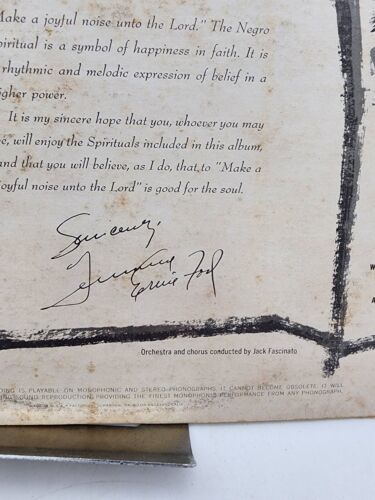 Make a joyful noise unto the Lord." The Negro
piritual is a symbol of happiness in faith. It is
rhythmic and melodic expression of belief in a
igher power.
It is my sincere hope that you, whoever you may
e, will enjoy the Spirituals included in this album,
and that you will believe, as I do, that to "Make a
joyful noise unto the Lord" is good for the soul.
Sincerely,
Tennessee
Ernie Ford
W
A
Orchestra and chorus conducted by Jack Fascinato
DING IS PLAYABLE ON MONOPHONIC AND STEREO PHONOGRAPHS. IT CANNOT BECOME OBSOLETE. IT WILL
SOUND REPRODUCTION, PROVIDING THE FINEST MONOPHONIC PERFORMANCE FROM ANY PHONOGRAPH.